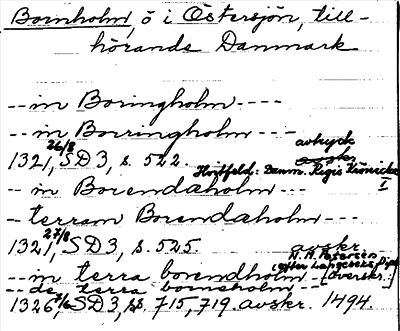 Bornholm, ö i Östersjön, till-
hörande Danmark
-- in Boringholm ----
-- in Borringholm ---
avtryck
1321, 26/8 SD3, s. 522. avskr.
Huitfeld: Danm. Regis Krönicke
I
-- in Borendaholm ---
- terram Borendaholm ---
1321, 27/8 SD3, s. 525. avskr.
N. M. Petersen
(efter Langebeks Dipl.
-- in terra borendholm -- (överskr.)
-- de terra bornsholm --
1326, SD3, ss. 715, 719. avskr. 1494.